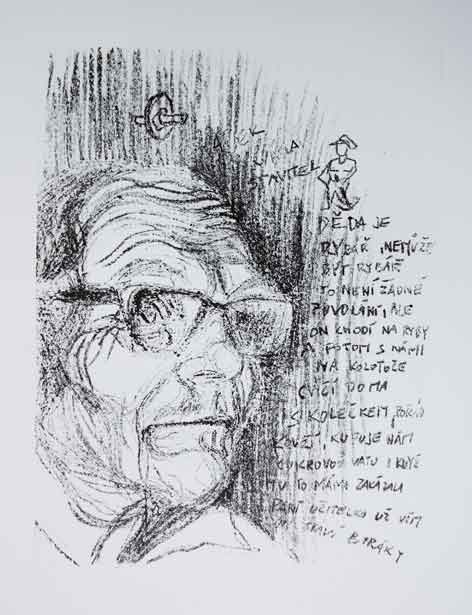 STAVITEL
DĚDA JE
RYBÁŘ, NEMŮŽE
BÝT RYBÁŘ
TO NENÍ ŽÁDNÉ
ZVOLÁNÍ, ALE
ON CHODÍ NA RYBY
A POTOM S NÁMI
NA KOLOTOČE
CVIČÍ DOMA
S KOLEČKEM, POŘÁD
KOUŘÍ, KUPUJE NÁM
CUKROVOU VATU I KDYŽ
MU TO MÁMA ZAKÁZALA
PANÍ UČITELKO UŽ VÍM
BURÁKY